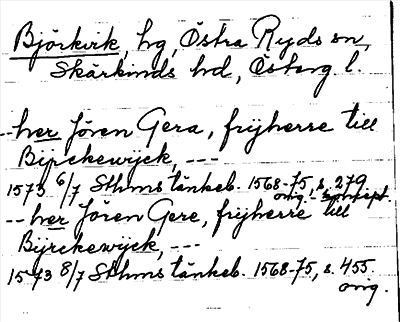 Björkvik, hg, Östra Ryds sn,
Skärkinds hd, Österg l.
-- her Jören Gera, frijherre till
Bijrckewijck, ---
1573 6/7 Sthms tänkeb. 1568-75, s. 279
orig. - koncept.
-- her Jören Gere, frijherre till
Bijrckewijck, ---
1573 8/7 Sthms tänkeb. 1568-75, s. 455
orig.